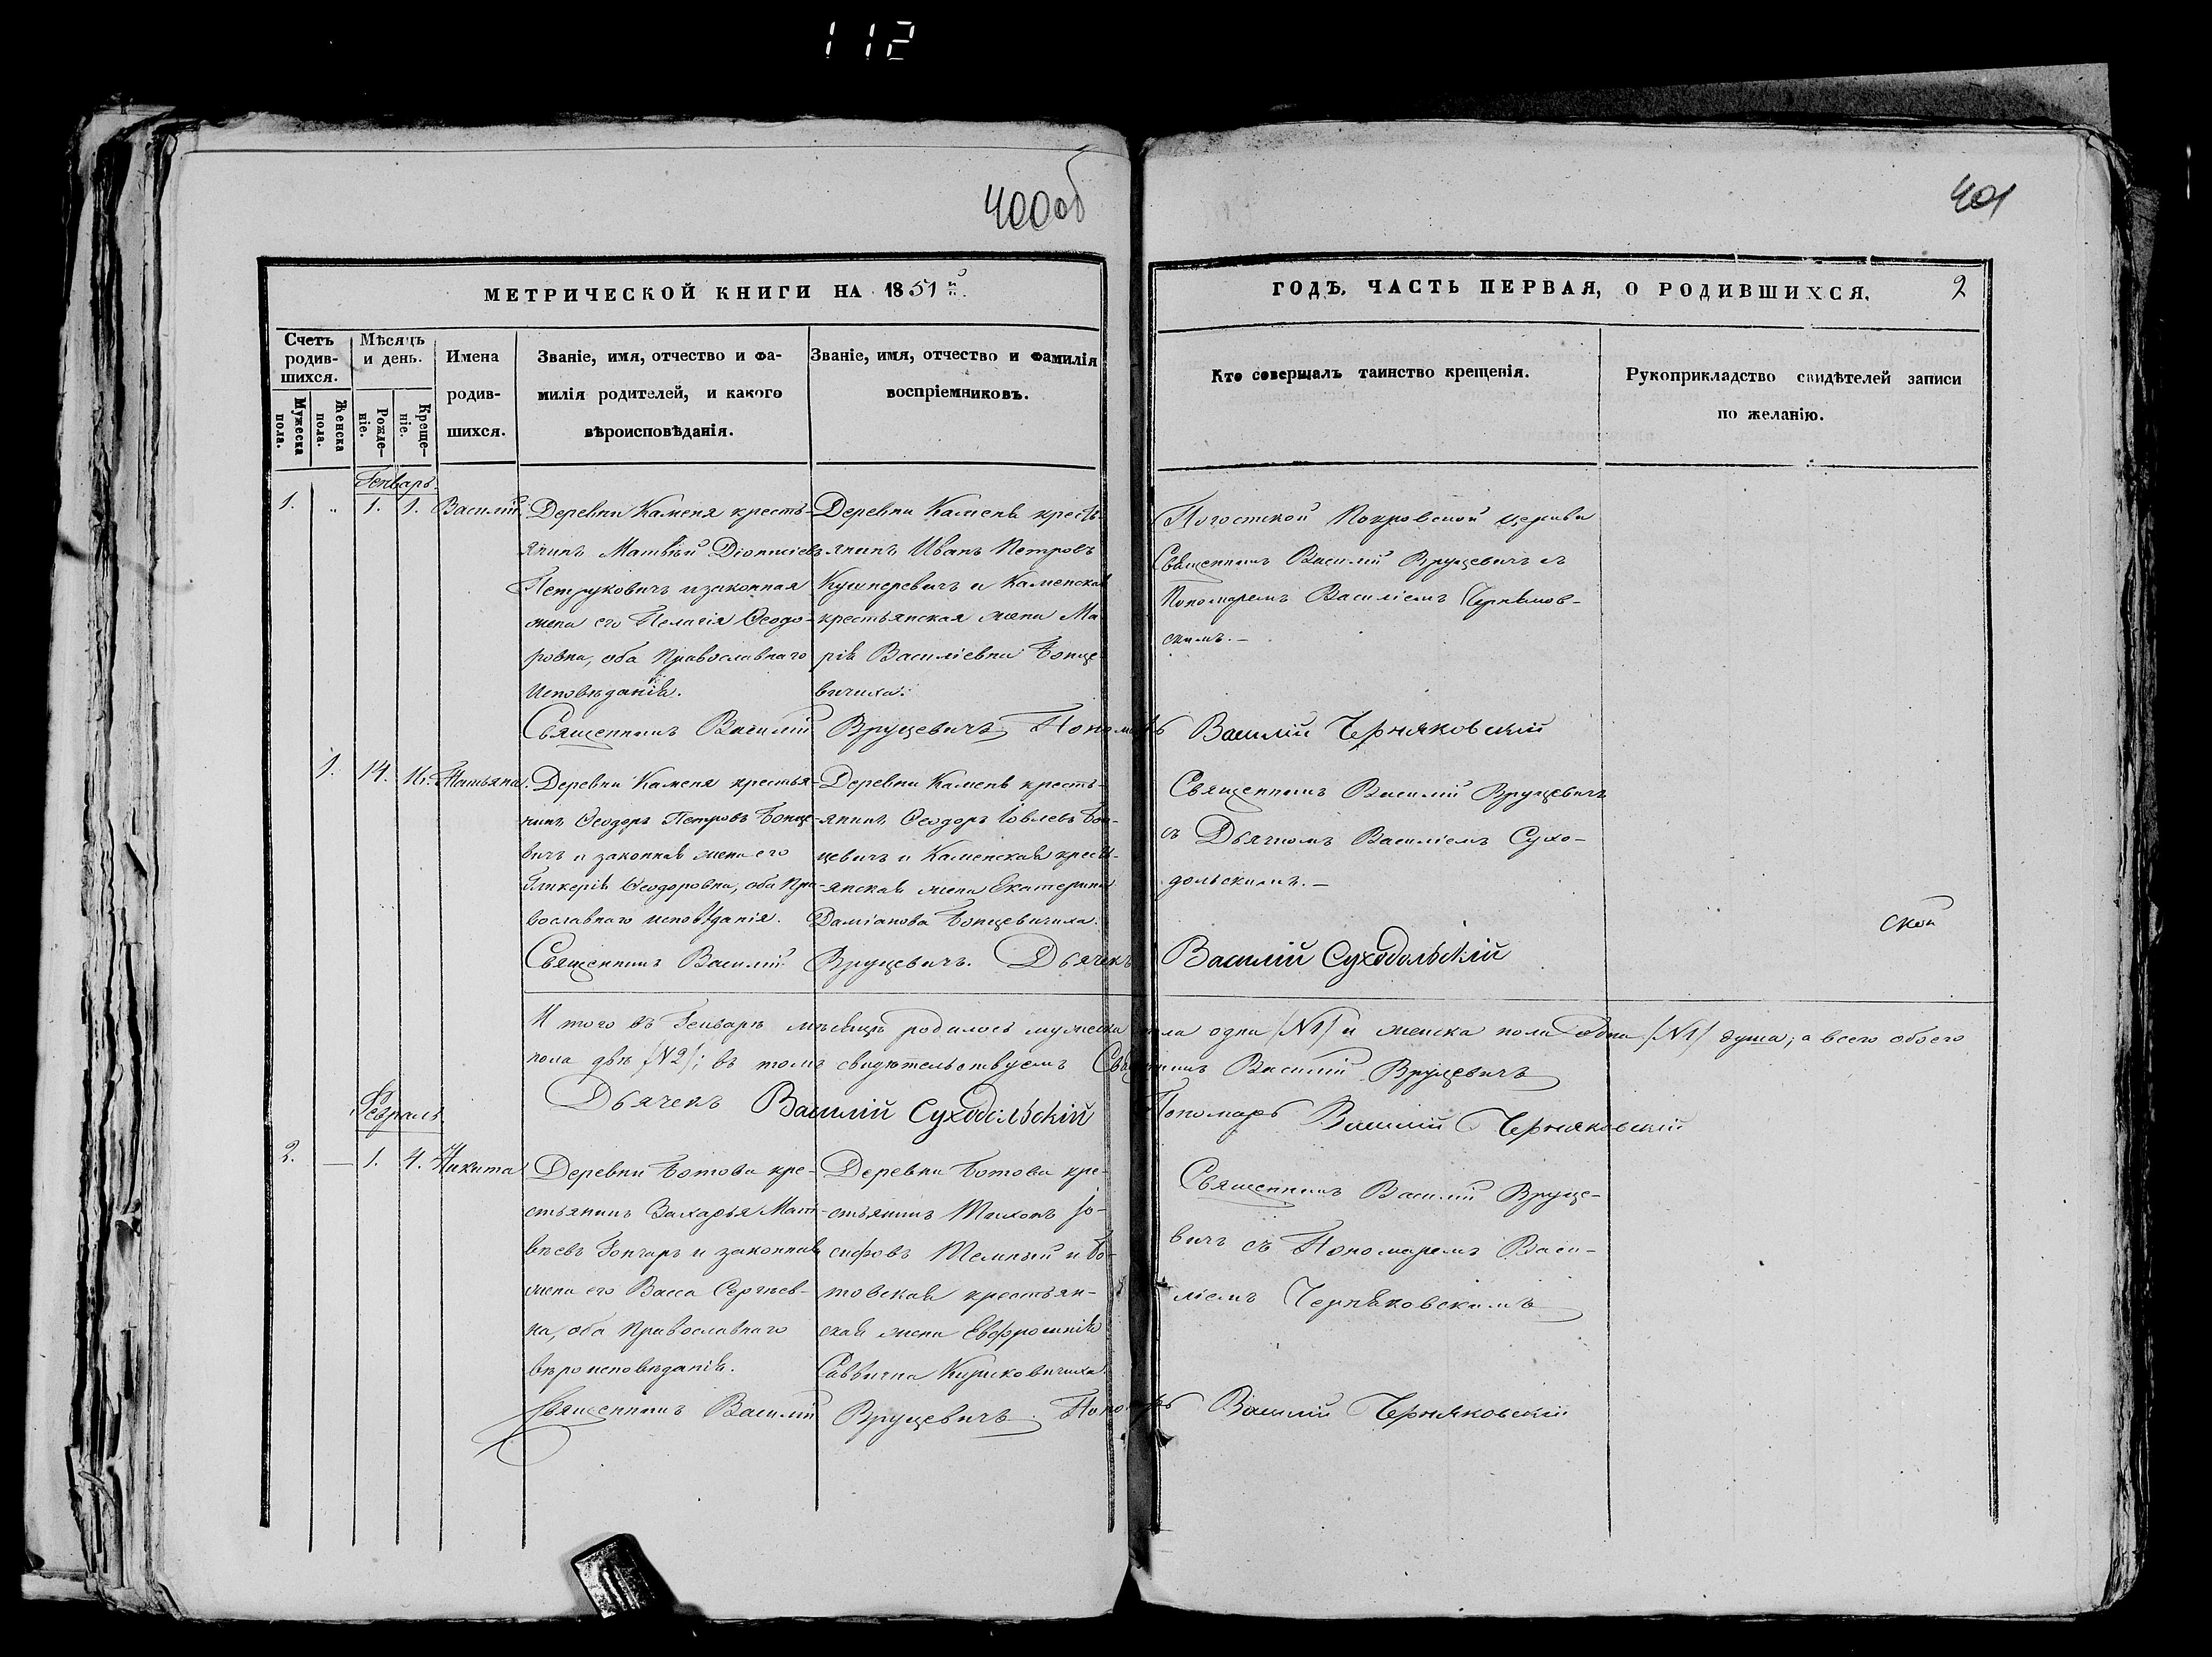 112
400об
401
МЕТРИЧЕСКОЙ КНИГИ НА 1851й
ГОДЪ. ЧАСТЬ ПЕРВАЯ, О РОДИВШИХСЯ.
2
Счетъ родив-шихся.
Мужеска пола.
Женска пола.
Мѣсяцъ и день.
Рожде-ніе.
Креще-ніе.
Имена
родив-
шихся.
Званіе, имя, отчество и фа-
милія родителей, и какого
вѣроисповѣданія.
Званіе, имя, отчество и фамилія
воспріемниковъ.
Кто совершалъ таинство крещенія.
Рукоприкладство свидѣтелей записи
по желанію.
Генварь.
1. „ 1. 1. Василій.
Деревни Каменя кресть-
янинъ Матвѣй Діонисіевъ
Петруковичъ и законная
жена его Пелагія Ѳеодо-
ровна, оба Православнаго
Исповѣданія.
Деревни Каменя кресть-
янинъ Иванъ Петровъ
Кушнеревичъ и Каменская
крестьянская жена Ма-
рія Василіевна Бонце-
вичиха.
Погостской Покровской церкви
Священникъ Василій Вруцевичъ съ
Пономаремъ Василіемъ Черняков-
скимъ.—
Священникъ Василій Вруцевичъ Пономарь Василій Черняковскій
1. 14. 16. Татьяна.
Деревни Каменя крестья-
нинъ Ѳеодоръ Петровъ Бонце-
вичъ и законная жена его
Гликерія Ѳеодоровна, оба Пра-
вославнаго исповѣданія.
Деревни Каменя кресть-
янинъ Ѳеодоръ Іовлевъ Бон-
цевичъ и Каменская кресть-
янская жена Екатерина
Даміанова Бонцевичиха.
Священникъ Василій Вруцевичъ
съ Дьячкомъ Василіемъ Сухо-
дольскимъ.—
ской
Священникъ Василій Вруцевичъ. Дьячекъ Василій Суходольскій
И того въ Генварѣ мѣсяцѣ родилось мужеска пола одна /№1/ и женска пола одна /№1/ душа; а всего обоего
пола двѣ /№2/; въ томъ свидѣтельствуемъ Священникъ Василій Вруцевичъ
Дьячекъ Василій Суходольскій Пономарь Василій Черняковскій
Февраль.
2. — 1. 4. Никита
Деревни Ботова кре-
стьянинъ Захарья Мат-
вѣевъ Гончаръ и законная
жена его Васса Сергѣев-
на, оба Православнаго
вѣроисповѣданія.
Деревни Ботова кре-
стьянинъ Тихонъ Іо-
сифовъ Темный и Бо-
товская крестьян-
ская жена Евфросинія
Саввична Кириковичиха.
Священникъ Василій Вруце-
вичъ съ Пономаремъ Васи-
ліемъ Черняковскимъ
Священникъ Василій Вруцевичъ. Пономарь Василій Черняковскій